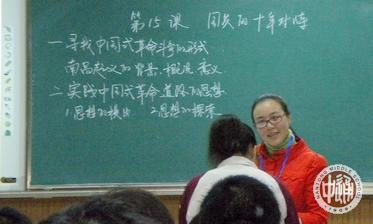 第15课 国共的十年对峙
一寻找中国式革命斗争的形式
南昌起义的背景、概况、意义
二实践中国式革命道路的思想
1思想的提出 2思想的探索